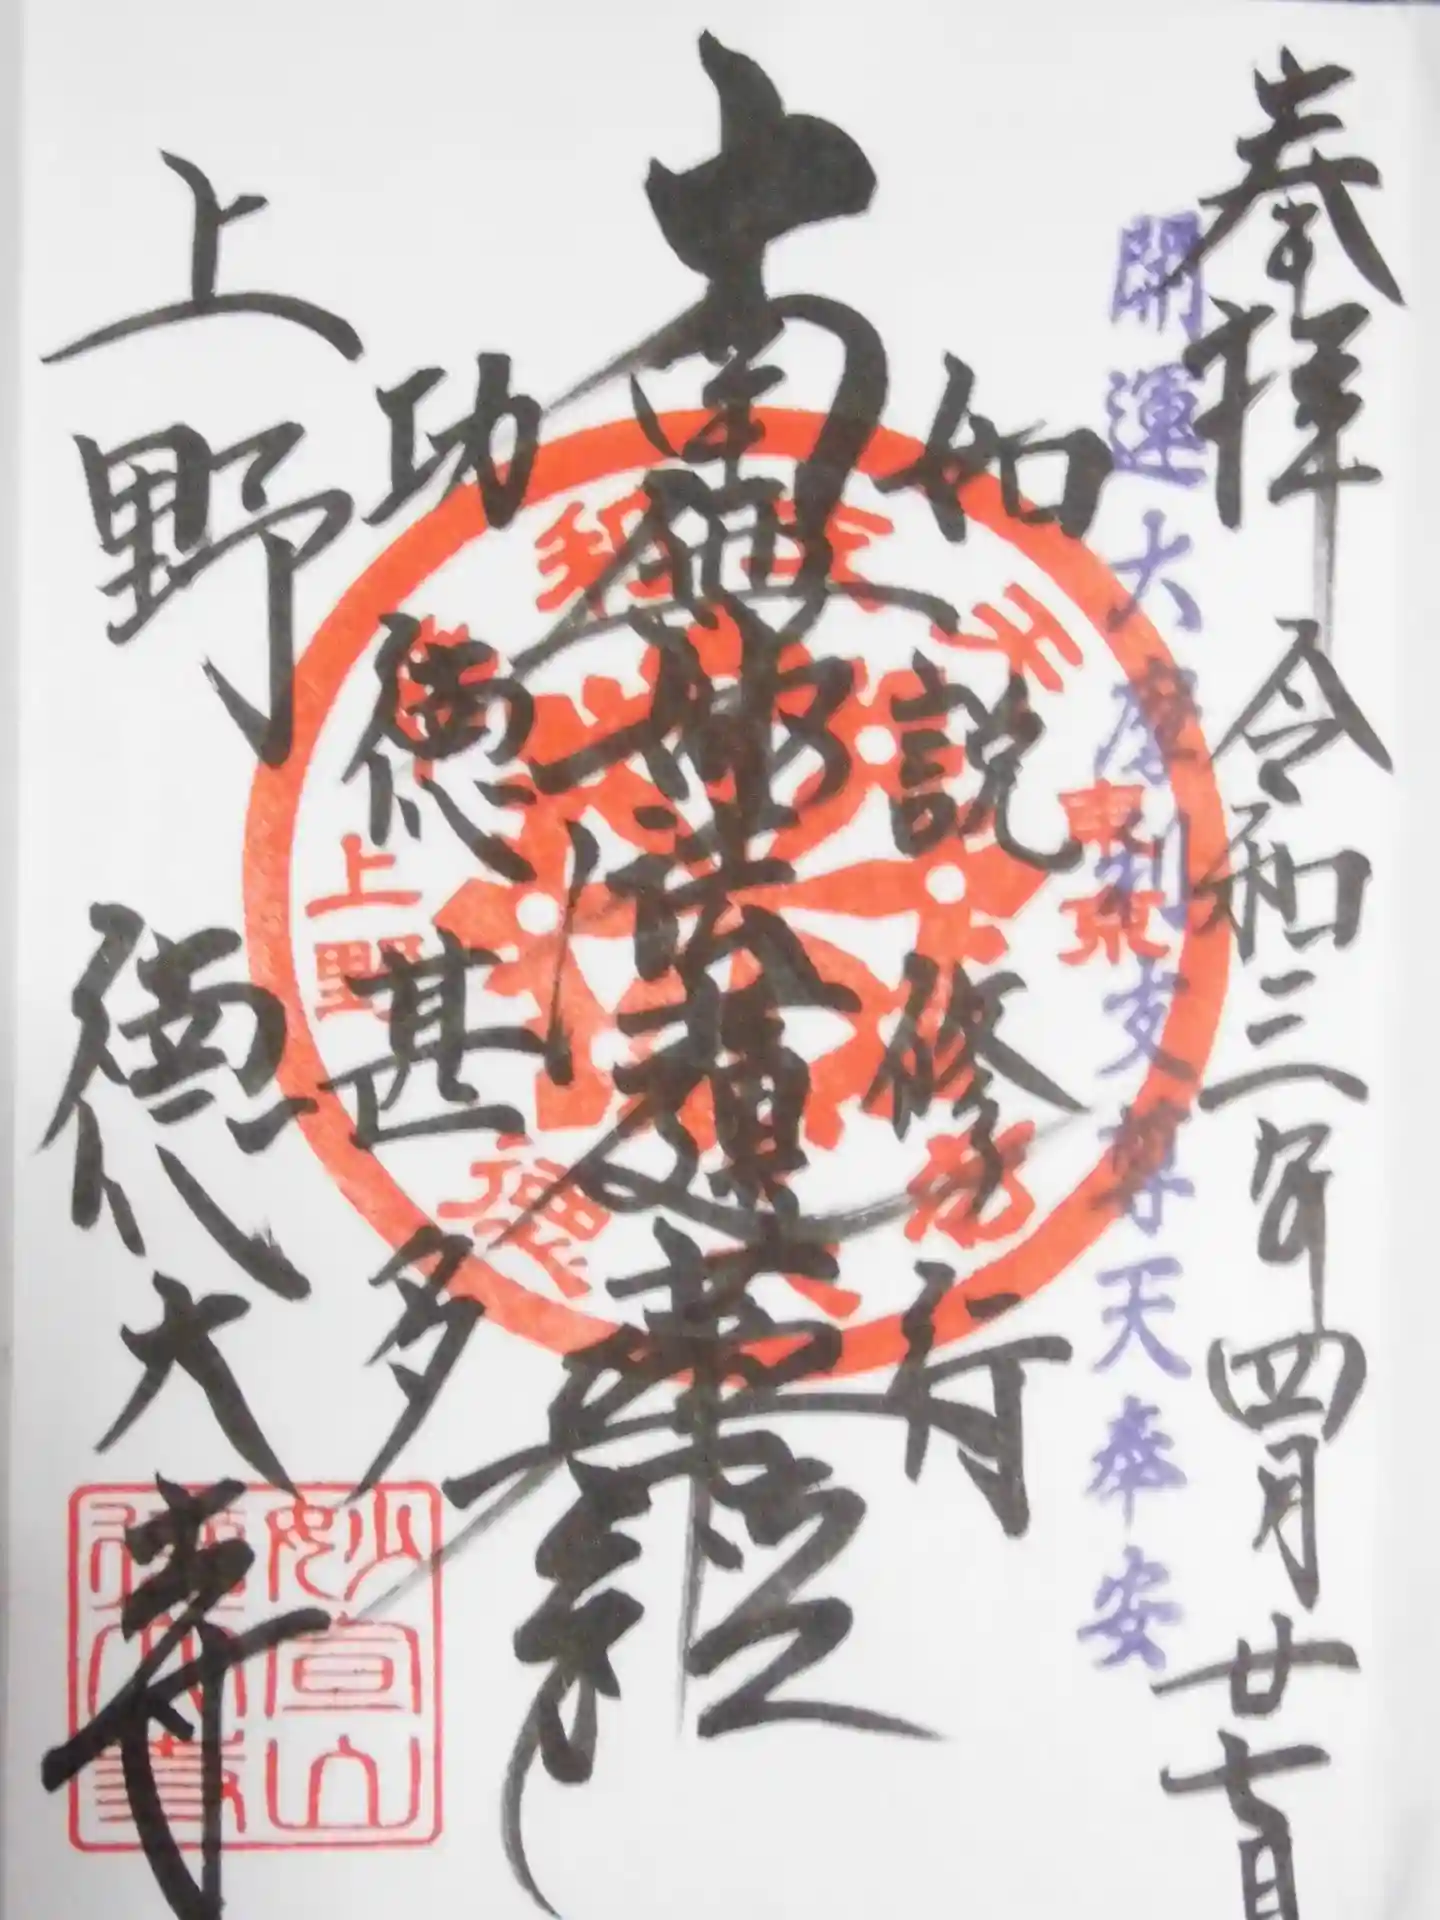 奉拝 令和三年四月廿七日
開運大摩利支尊天奉安
如説修行
南無妙法蓮華経
功徳甚多
上野 徳大寺
東京
上野
妙宣山